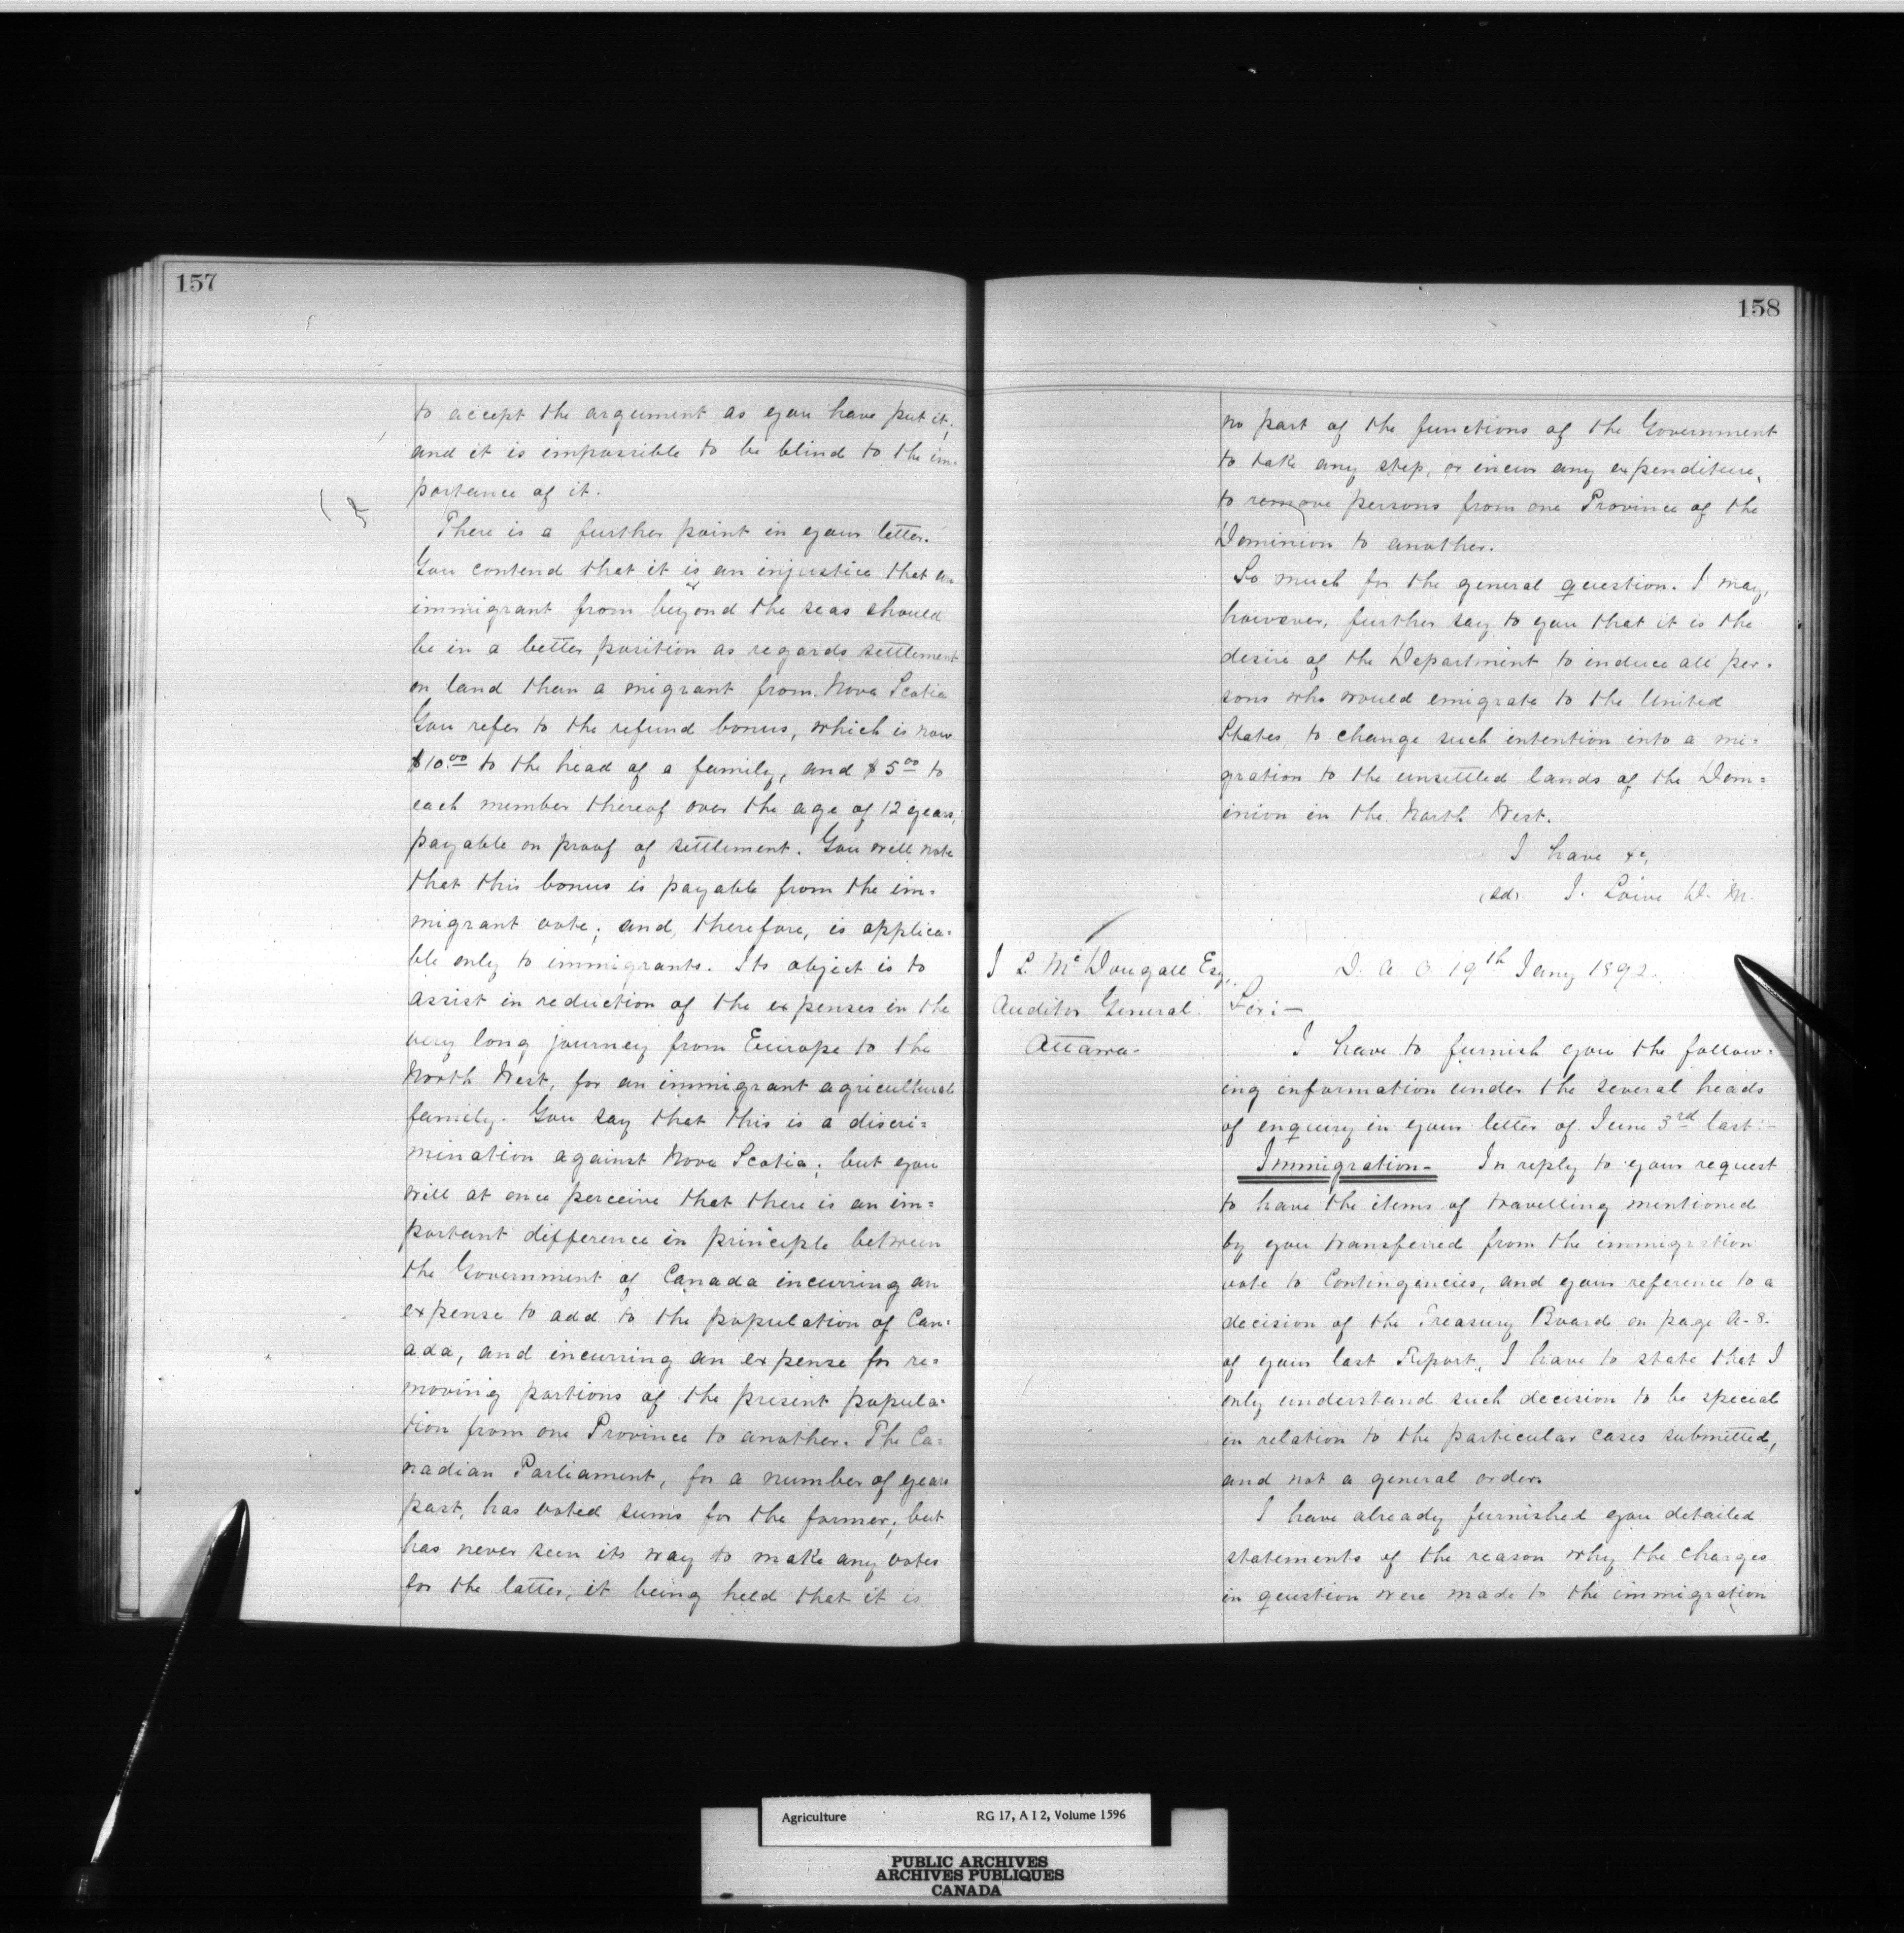 157
to accept the argument as you have put it;
and it is impossible to be blind to the im-
portance of it.
There is a further point in your letter.
You contend that it is an injustice that an
immigrant from beyond the seas should
be in a better position as regards settlement
on land than a migrant from Nova Scotia
You refer to the refund bonus, which is now
$10.00 to the head of a family, and $5.00 to
each member thereof over the age of 12 years,
payable on proof of settlement. You will note
that this bonus is payable from the im-
migrant vote; and, therefore, is applica=
ble only to immigrants. Its object is to
assist in reduction of the expenses in the
very long journey from Europe to the
North West, for an immigrant agricultural
family. You say that this is a discri=
mination against Nova Scotia; but you
will at once perceive that there is an im=
portant difference in principle between
the Government of Canada incurring an
expense to add to the population of Can-
ada, and incurring an expense for re=
moving portions of the present popula-
tion from one Province to another. The Ca=
nadian Parliament, for a number of years
past, has voted sums for the former; but
has never seen its way to make any votes
for the latter, it being held that it is
158
no part of the functions of the Government
to take any step, or incur any expenditure,
to remove persons from one Province of the
Dominion to another.
So much for the general question. I may,
however, further say to you that it is the
desire of the Department to induce all per-
sons who would emigrate to the United
States, to change such intention into a mi=
gration to the unsettled lands of the Dom=
inion in the North West.
I have &c,
(Sd) J. Lowe D. M.
J L McDougall Esq,
Auditor General
Ottawa-
D. A. O. 19th Jany 1892.
Sir:-
I have to furnish you the follow-
ing information under the several heads
of enquiry in your letter of June 3rd last:-
Immigration- In reply to your request
to have the items of travelling mentioned
by you transferred from the immigration
vote to Contingencies, and your reference to a
decision of the Treasury Board on page A-8.
of your last Report, I have to state that I
only understand such decision to be special
in relation to the particular cases submitted,
and not a general order.
I have already furnished you detailed
statements of the reason why the charges
in question were made to the immigration
Agriculture RG 17, A I 2, Volume 1596
PUBLIC ARCHIVES
ARCHIVES PUBLIQUES
CANADA